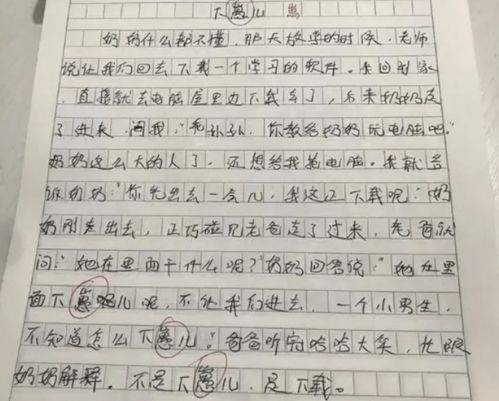 下崽儿 崽
奶奶什么都不懂，那天放学的时候，老师
说让我们回去下载一个学习的软件。我回到家
，直接就去电脑屋里边下载去了，后来奶奶走
了进来，问我，“毛孙孙，你教给奶奶玩电脑吧。”
奶奶这么大的人了，还想给我抢电脑。我就告
诉奶奶：“你先出去一会儿，我这正下载呢：“奶
奶刚走出去，正巧碰见老爸走了过来，老爸就
问：“她在里面干什么呢？”奶奶回答说：“她在里
面下崽儿呢，不让我们进去，一个小男生，
不知道怎么下崽儿。”爸爸听完哈哈大笑，忙跟
奶奶解释。不是下崽儿，是下载。